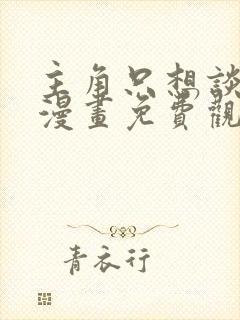 主角只想談
漫畫免費觀
青衣行